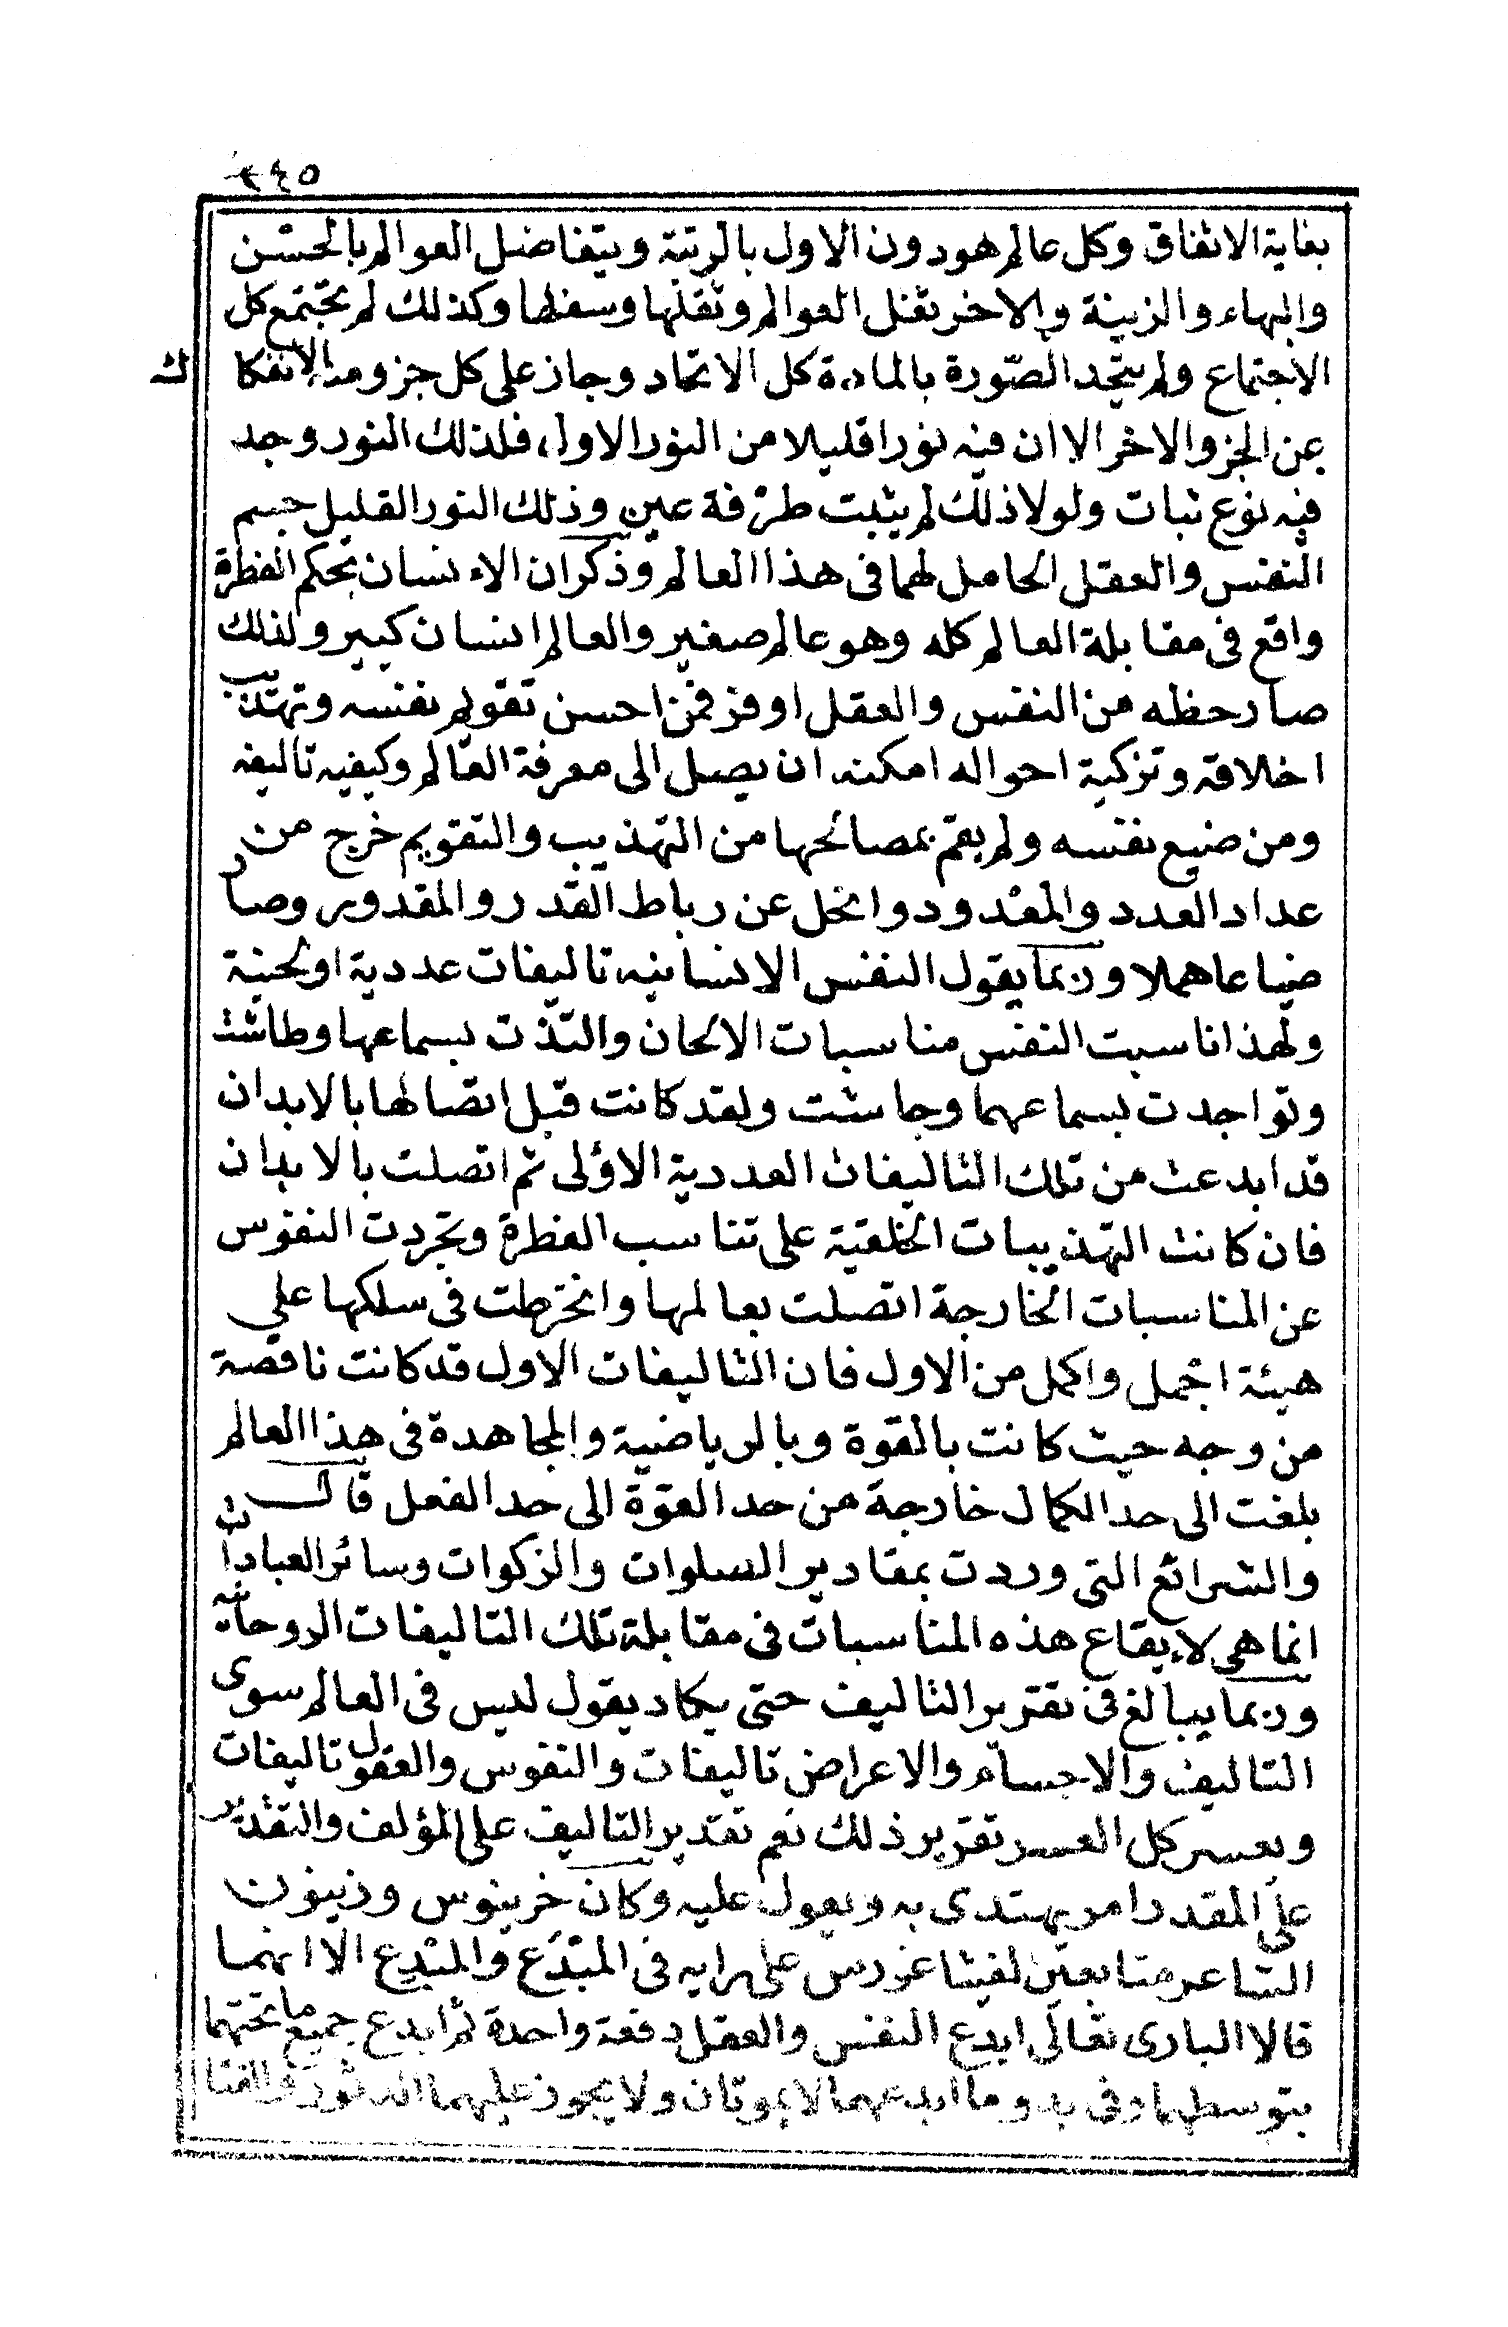 ٢٤٥
بغاية الاتفاق وكل عالم هو دون الاول بالرتبة ويتفاضل العوالم بالحسن
والبهاء والزينة والاخر ثفل العوالم وثقلها وسفلها وكذلك لم يجتمع كل
الاجتماع ولم يتحد الصّورة بالمادة كل الاتحاد وجاز على كل جزو منه الانفكاك
عن الجزو الاخر الا ان فيه نورا قليلا من النور الاول فلذلك النور وجد
فيه نوع ثبات ولولا ذلك لم يثبت طرفة عين وذلك النور القليل جسم
النفس والعقل الحامل لهما فى هذا العالم وذكر ان الانسان بحكم الفطرة
واقع فى مقابلة العالم كله وهو عالم صغير والعالم انسان كبير ولذلك
صار حظه من النفس والعقل اوفر فمن احسن تقويم نفسه وتهذيب
اخلاقه وتزكية احواله امكنه ان يصل الى معرفة العالم وكيفيه تاليفه
ومن ضيع نفسه ولم يقم بمصالحها من التهذيب والتقويم خرج من
عداد العدد والمعدود وانحل عن رباط القدر والمقدور وصار
ضياعا هملا وربما يقول النفس الانسانيه تاليفات عددية او لحنية
ولهذا ناسبت النفس مناسبات الالحان والتذت بسماعها وطاشت
وتواجدت بسماعهما وجاشت ولقد كانت قبل اتصالها بالابدان
قد ابدعت من تلك التاليفات العددية الاولى ثم اتصلت بالابدان
فان كانت التهذيبات الخلقية على تناسب الفطرة وتجردت النفوس
عن المناسبات الخارجة اتصلت بعالمها وانخرطت فى سلكها على
هيئة اجمل واكمل من الاول فان التاليفات الاول قد كانت ناقصة
من وجه حيث كانت بالقوة وبالرياضية والمجاهدة فى هذا العالم
بلغت الى حد الكمال خارجة من حد القوة الى حد الفعل قال
والشرائع التى وردت بمقادير السلوات والزكوات وسائر العبادات
انما هى لايقاع هذه المناسبات فى مقابلة تلك التاليفات الروحانيه
وربما يبالغ فى تقرير التاليف حتى يكاد يقول ليس فى العالم سوى
التاليف والاجسام والاعراض تاليفات والنفوس والعقول تاليفات
ويعسر كل العسر تقرير ذلك نعم تقدير التاليف على المؤلف والتقدير
على المقدر امر يهتدى به ويعول عليه وكان خرينوس وزينون
الشاعر متابعين لفيثاغورس على رايه فى المبدع والمبدع الا انهما
قالا البارى تعالى ابدع النفس والعقل دفعة واحدة ثم ابدع جميع ما تحتهما
بتوسطهما وفى بدو ما ابدعهما لا يموتان ولا يجوز عليهما الدثور والفنا